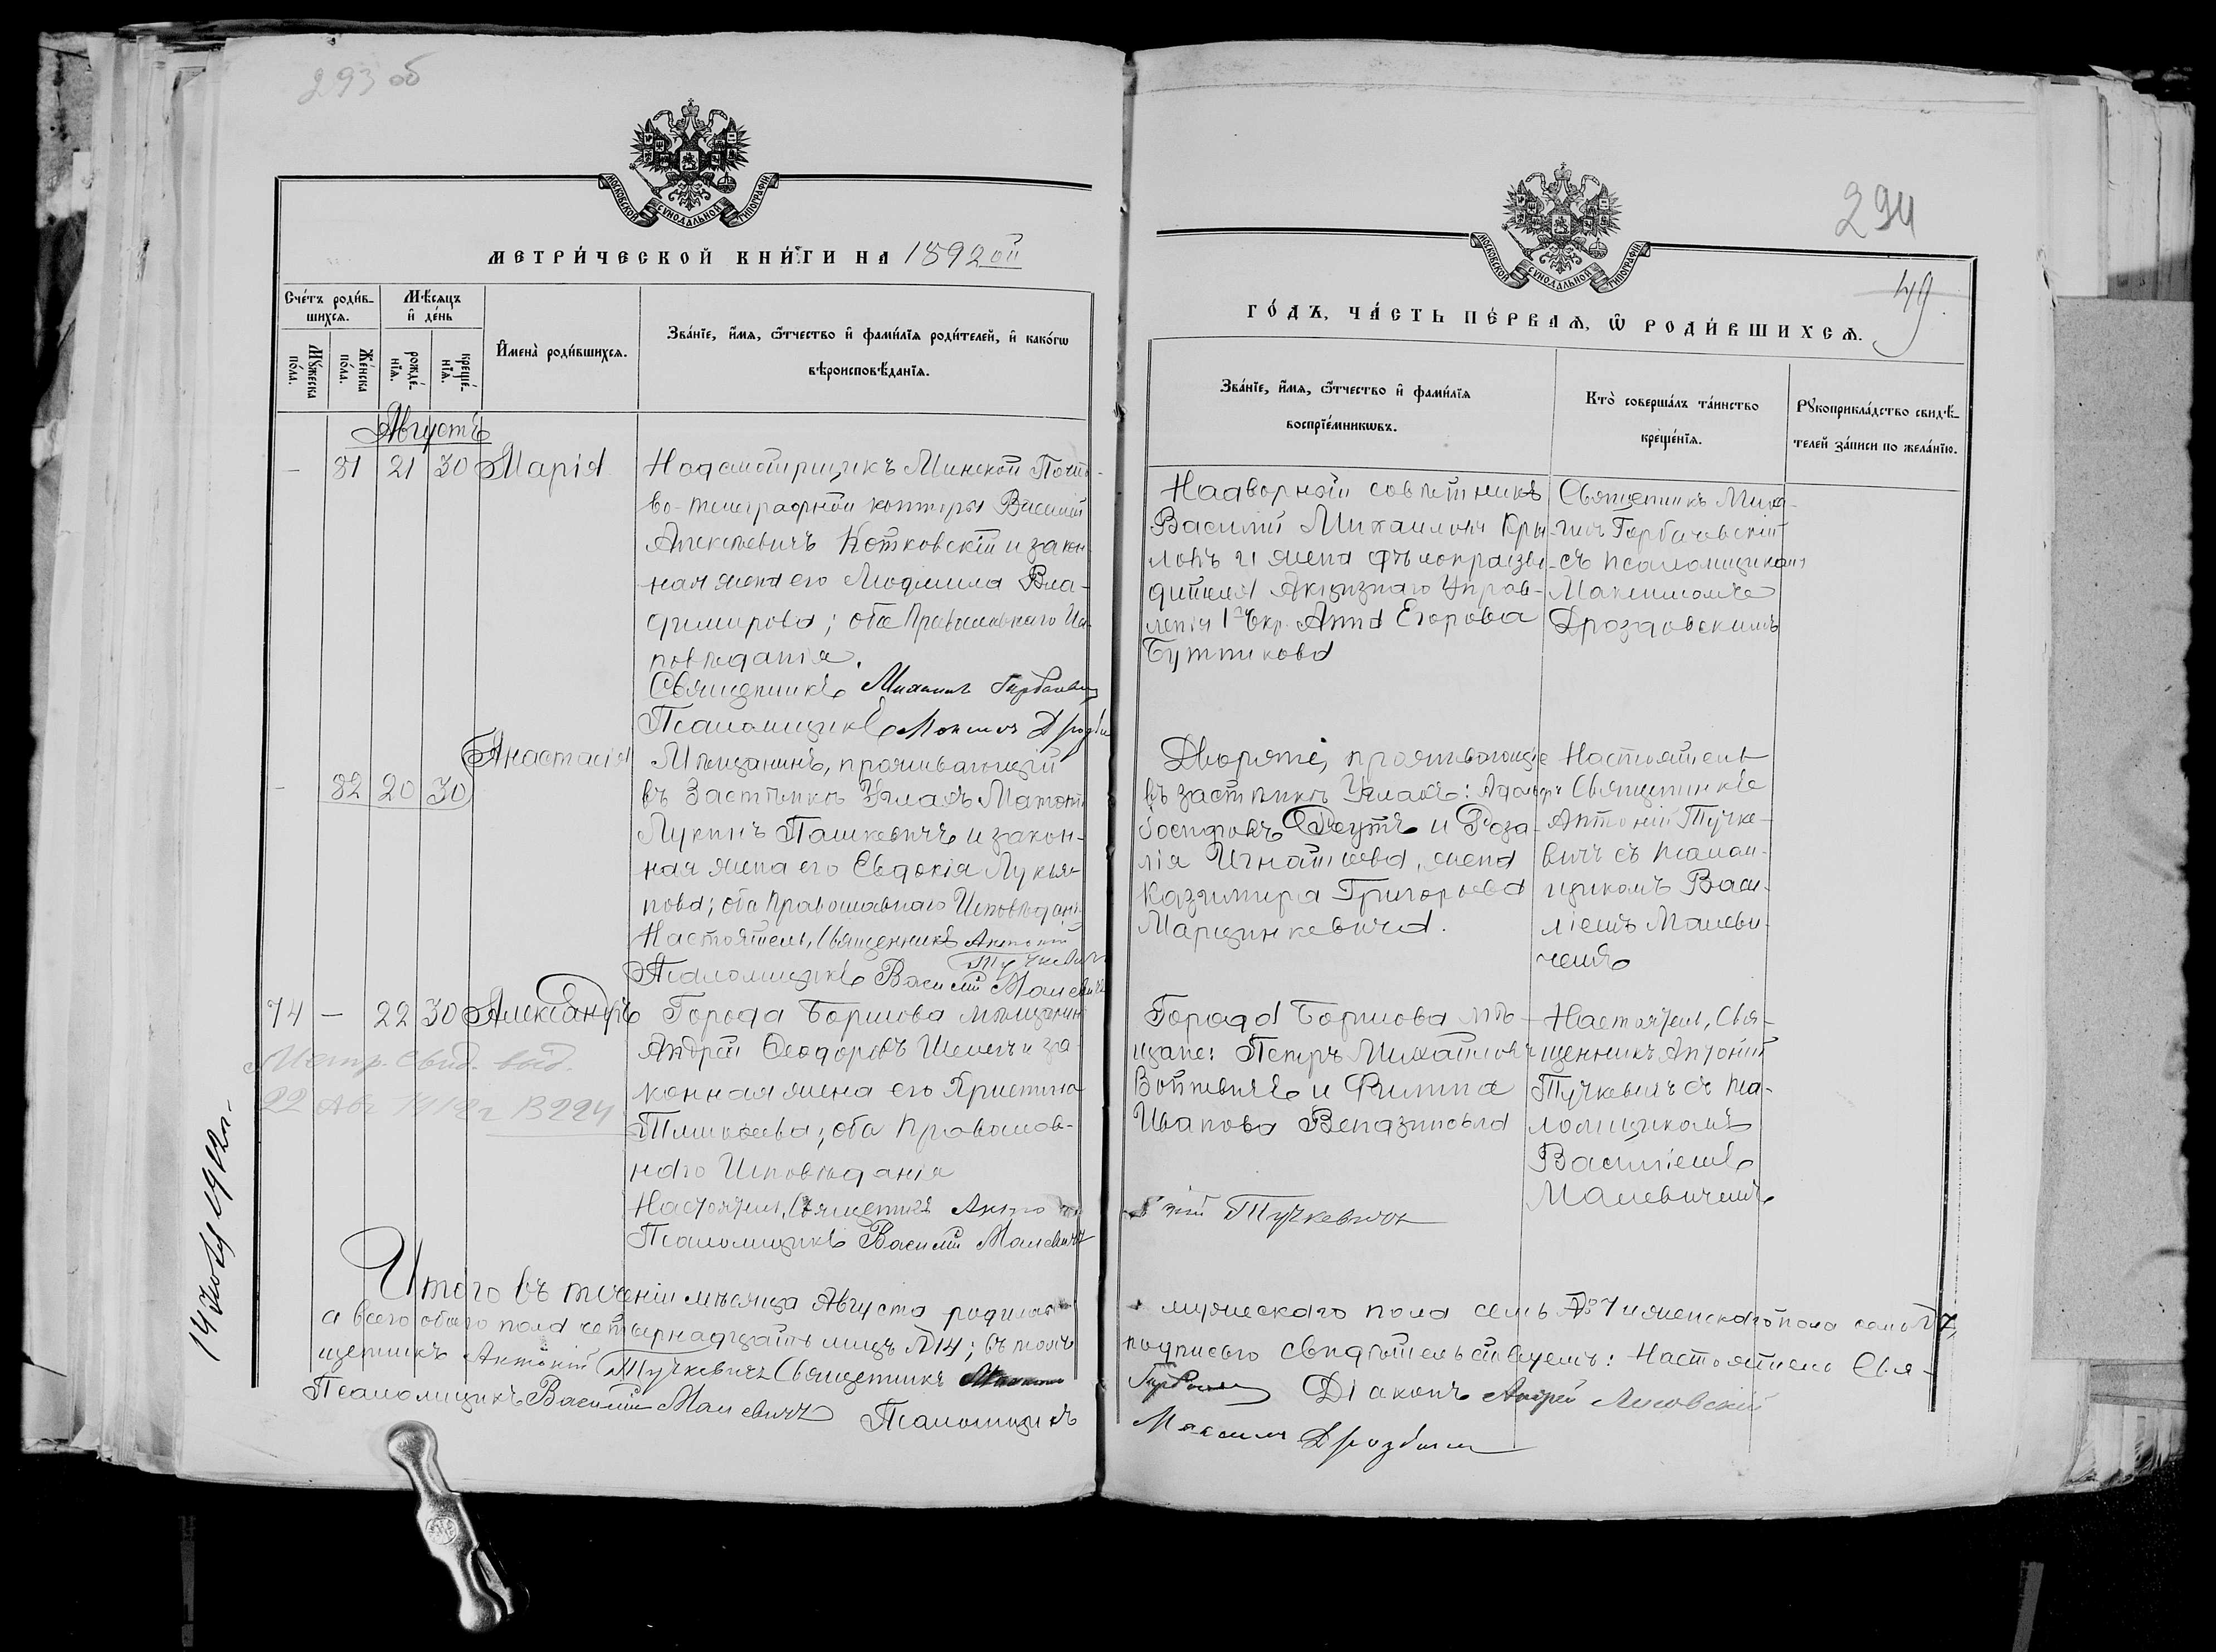 293 об
МОСКОВСКОЙ СѴНОДАЛЬНОЙ ТИПОГРАФІИ
МЕТРИ́ЧЕСКОЙ КНИ́ГИ НА 1892ой
Сче́тъ роди́в-
шихсѧ.
Мѣ́сѧцъ
и҆ де́нь
И҆мена̀ роди́вшихсѧ.
Зва́нїе, и҆́мѧ, ѻ҆́тчество и҆ фами́лїѧ роди́телей, и҆ како́гѡ
вѣроисповѣ́данїѧ.
Мꙋ́жеска
по́ла.
Же́нска
по́ла.
рожде́-
нїѧ.
креще́-
нїѧ.
Августъ
— 81 21 30 Марія
Надсмотрщикъ Минской Почто-
во-телеграфной конторы Василій
Алексѣевичъ Котковскій и закон-
ная жена его Людмила Вла-
димирова; оба Православнаго Ис-
повѣданія.
Священникъ Михаилъ Горбачевскій
Псаломщикъ Максимъ Дрозд
Анастасія
- 82 20 30
Мѣщанинъ, проживающій
въ Застѣнкѣ Углахъ Матѳей
Лукинъ Пашкевичъ и закон-
ная жена его Евдокія Лукья-
нова; оба Православнаго Исповѣдані-
Настоятель, Священникъ Антоній
Тучкевичъ
Псаломщикъ Василій Малевичъ
74 — 22 30 Александръ
Города Борисова мѣщанинъ
Андрей Ѳеодоровъ Шелегъ и за-
конная жена его Христина
Тимоѳеева; оба Православ-
наго Исповѣданія
Настоятель, Священникъ Анто
Псаломщикъ Василій Малевичъ
Метр. свид. выд.
22 Авг 1912 г В 224
14 Іюля 1912 г.
Итого въ теченіи мѣсяца Августа родилось
а всего обоего пола четырнадцать лицъ № 14; въ томъ
щенникъ Антоній Тучкевичъ Священникъ Михаилъ
Псаломщикъ Василій Малевичъ Псаломщикъ
294
49
МОСКОВСКОЙ СѴНОДАЛЬНОЙ ТИПОГРАФІИ
ГО́ДЪ, ЧА́СТЬ ПЕ́РВАѦ, Ѡ҆ РОДИ́ВШИХСѦ.
Зва́нїе, и҆́мѧ, ѻ҆́тчество и҆ фами́лїѧ
воспрїе́мникѡвъ.
Кто̀ соверша́лъ та́инство
креще́нїѧ.
Рꙋкоприкла́дство свидѣ́-
телей за́писи по жела́нїю.
Надворный совѣтникъ
Василій Михаиловъ Кры-
ловъ и жена дѣлопроизво-
дителя Акцизнаго Управ-
ленія 1го Окр. Анна Егорова
Бутникова
Священникъ Миха-
илъ Горбачевскій
съ псаломщикомъ
Максимомъ
Дроздовскимъ
Дворяне, проживающіе
въ застѣнкѣ Углахъ: Адольфъ
Іосифовъ Реутъ и Роза-
лія Игнатьева, жена
Казимира Григорьева
Марцинкевича.
Настоятель
Священникъ
Антоній Тучке-
вичъ съ псалом-
щикомъ Васи-
ліемъ Малеви-
чемъ
Города Борисова мѣ-
щане: Петръ Михайловъ
Войтевичъ и Филипа
Иванова
Настоятель, Свя-
щенникъ Антоній
Тучкевичъ съ пса-
ломщикомъ
Василіемъ
Малевичемъ
ній Тучкевичъ
мужескаго пола семь № 7 и женскаго пола семь № 7,
подписью свидѣтельствуемъ: Настоятель Свя-
Горбачевскій Діаконъ Андрей Лисовскій
Максимъ Дрозд